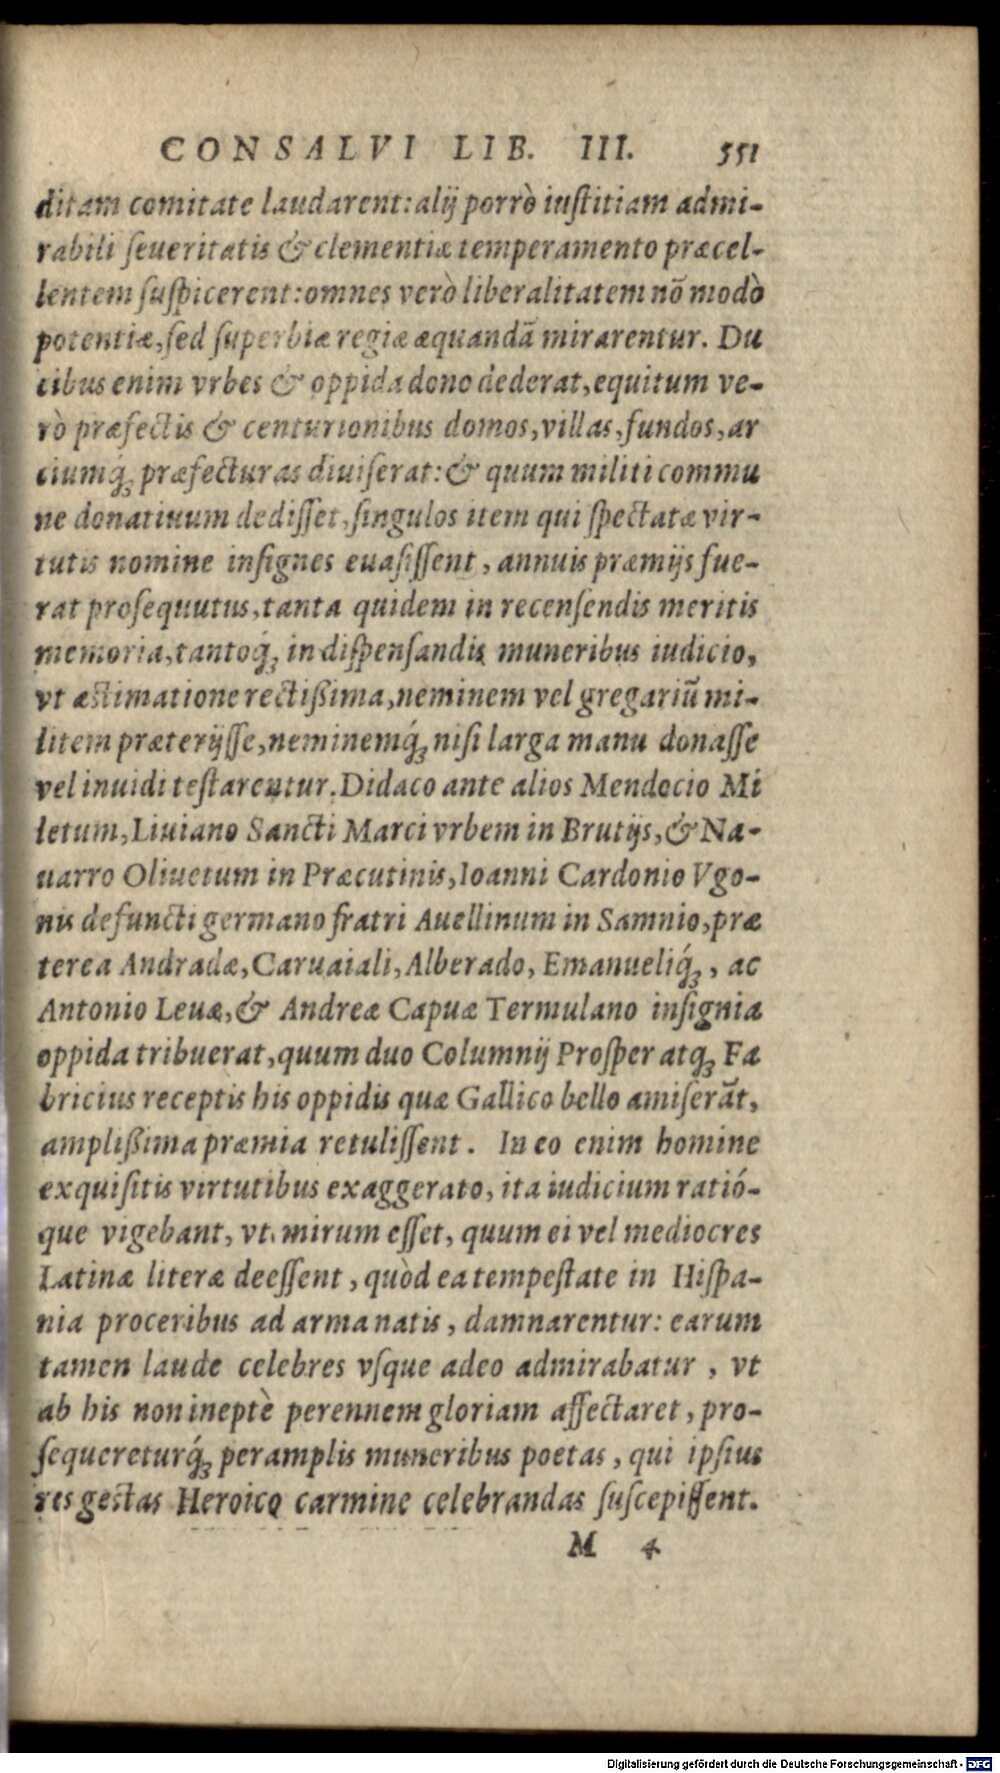 CONSALVI LIB. III. 551
ditam comitate laudarent: alij porrò iustitiam admi-
rabili seueritatis & clementiæ temperamento præcel-
lentem suspicerent: omnes verò liberalitatem nõ modò
potentiæ, sed superbiæ regiæ æquandã mirarentur. Du
cibus enim vrbes & oppida dono dederat, equitum ve-
rò præfectis & centurionibus domos, villas, fundos, ar
ciumq́; præfecturas diuiserat: & quum militi commu
ne donatiuum dedisset, singulos item qui spectatæ vir-
tutis nomine insignes euasissent, annuis præmijs fue-
rat prosequutus, tanta quidem in recensendis meritis
memoria, tantoq́; in dispensandis muneribus iudicio,
vt æstimatione rectißima, neminem vel gregariũ mi-
litem præterijsse, neminemq́; nisi larga manu donasse
vel inuidi testarentur. Didaco ante alios Mendocio Mi
letum, Liuiano Sancti Marci vrbem in Brutijs, & Na-
uarro Oliuetum in Præcutinis, Ioanni Cardonio Vgo-
nis defuncti germano fratri Auellinum in Samnio, præ
terea Andradæ, Caruaiali, Alberado, Emanueliq́;, ac
Antonio Leuæ, & Andreæ Capuæ Termulano insignia
oppida tribuerat, quum duo Columnij Prosper atq; Fa
bricius receptis his oppidis quæ Gallico bello amiserãt,
amplißima præmia retulissent. In eo enim homine
exquisitis virtutibus exaggerato, ita iudicium ratió-
que vigebant, vt mirum esset, quum ei vel mediocres
Latinæ literæ deessent, quòd ea tempestate in Hispa-
nia proceribus ad arma natis, damnarentur: earum
tamen laude celebres vsque adeo admirabatur, vt
ab his non ineptè perennem gloriam affectaret, pro-
sequereturq́; peramplis muneribus poetas, qui ipsius
res gestas Heroico carmine celebrandas suscepissent.
M 4
Digitalisierung gefördert durch die Deutsche Forschungsgemeinschaft - DFG